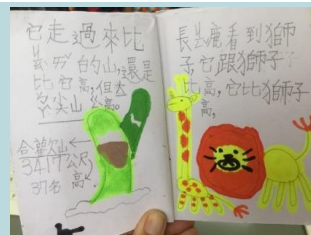 它走過來比
的山,還是
比它高,但去
尖山 高。
合歡尖山←
3417公尺
37名 高。
長頸鹿看到獅
子,它跟獅子
比高,它比獅子
高,